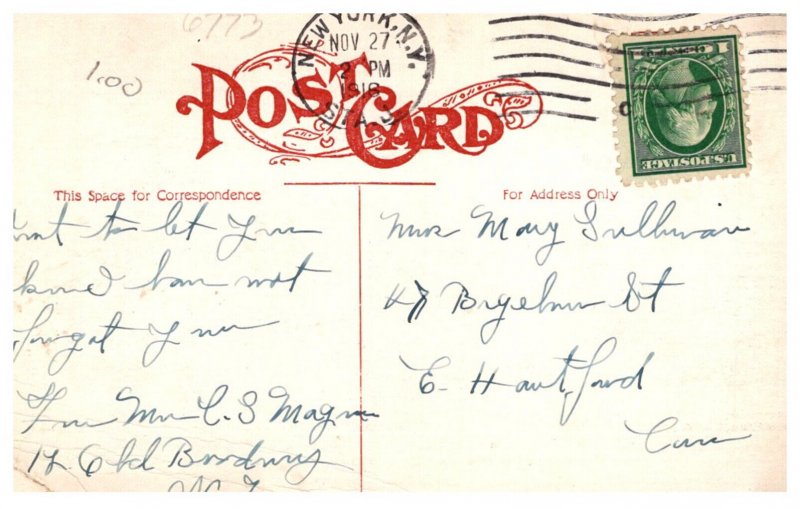 6773
1.00
NEW YORK, N.Y.
NOV 27
2 PM
1916
STA. J
U.S. POSTAGE
1
POST CARD
This Space for Correspondence
For Address Only
to let you
know have not
forgot you
From Mrs C. S.
12 Old Broadway
N.Y.
Mrs Mary Sullivan
St
E. Hartford
Conn